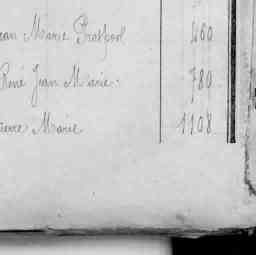 Jean Marie 460
René Jean Marie. 780
Pierre Marie 1108